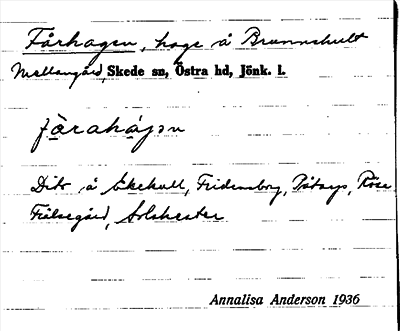 Fårhagen, hage å Brunnshult
Mellangård, Skede sn, Östra hd, Jönk. l.
fårahágən
Dito å Ekekull, Fridensborg, Röse
Frälsegård,
Annalisa Anderson 1936